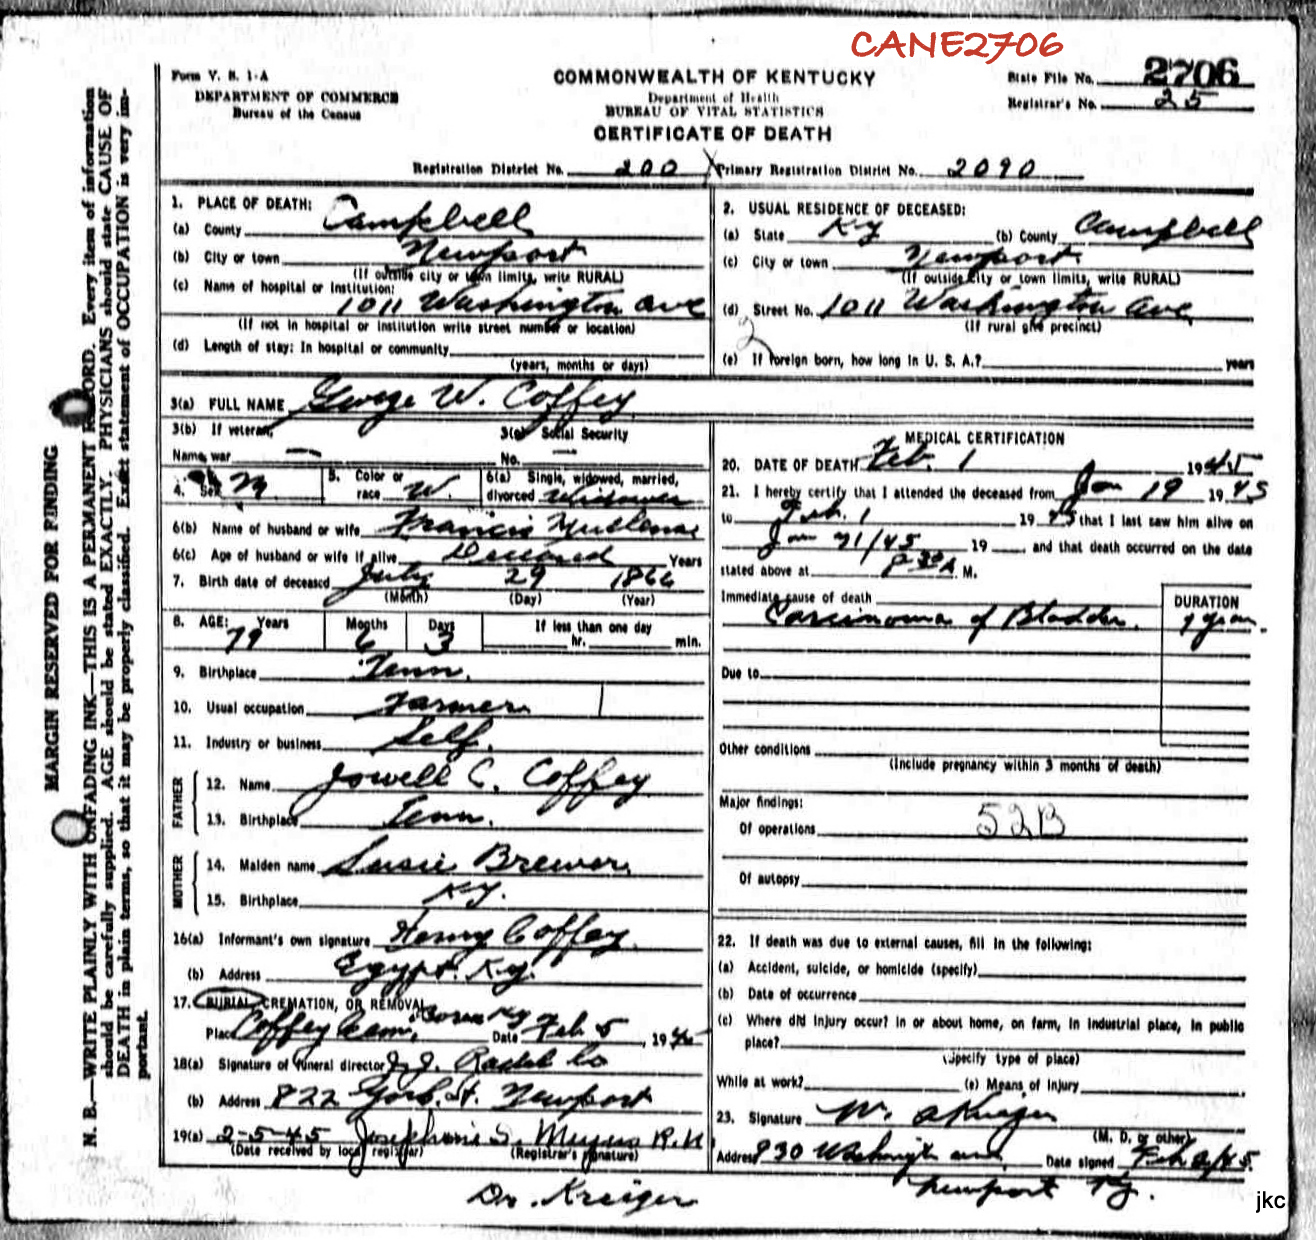 CANE2706
Form V. S. 1-A
DEPARTMENT OF COMMERCE
Bureau of the Census
COMMONWEALTH OF KENTUCKY
Department of Health
BUREAU OF VITAL STATISTICS
CERTIFICATE OF DEATH
State File No. 2706
Registrar's No. 25
Registration District No. 200 Primary Registration District No. 2090
MARGIN RESERVED FOR BINDING
N. B.—WRITE PLAINLY WITH UNFADING INK—THIS IS A PERMANENT RECORD. Every item of information
should be carefully supplied. AGE should be stated EXACTLY. PHYSICIANS should state CAUSE OF
DEATH in plain terms, so that it may be properly classified. Exact statement of OCCUPATION is very im-
portant.
1. PLACE OF DEATH:
(a) County Campbell
(b) City or town Newport
(If outside city or town limits, write RURAL)
(c) Name of hospital or institution:
1011 Washington Ave
(If not in hospital or institution write street number or location)
(d) Length of stay: In hospital or community
(years, months or days)
2. USUAL RESIDENCE OF DECEASED:
(a) State Ky (b) County Campbell
(c) City or town Newport
(If outside city or town limits, write RURAL)
(d) Street No. 1011 Washington Ave
(If rural give precinct)
2
(e) If foreign born, how long in U. S. A.? years
3(a) FULL NAME George W. Coffey
3(b) If veteran, 3(c) Social Security
Name war — No. —
4. Sex M 5. Color or race W. 6(a) Single, widowed, married, divorced Widower
6(b) Name of husband or wife Francis
6(c) Age of husband or wife if alive Deceased Years
7. Birth date of deceased July 29 1866
(Month) (Day) (Year)
8. AGE: Years Months Days If less than one day
79 6 3 hr. min.
9. Birthplace Tenn.
10. Usual occupation Farmer
11. Industry or business Self.
FATHER
12. Name Jowell C. Coffey
13. Birthplace Tenn.
MOTHER
14. Maiden name Susie Brewer
15. Birthplace Ky.
16(a) Informant's own signature Henry Coffey
(b) Address Egypt. Ky.
17. BURIAL, CREMATION, OR REMOVAL
Place Coffey Cem. Date Feb 5, 1945
18(a) Signature of funeral director J. J. Radel Co
(b) Address 822 York St. Newport
19(a) 2-5-45 Josephine S. R.N
(Date received by local registrar) (Registrar's signature)
MEDICAL CERTIFICATION
20. DATE OF DEATH Feb. 1 1945
21. I hereby certify that I attended the deceased from Jan 19 1945
to Feb. 1 1945 that I last saw him alive on
Jan 31/45 19 and that death occurred on the date
stated above at 8 30 A M.
Immediate cause of death
Carcinoma of Bladder.
DURATION
1 year.
Due to
Other conditions
(Include pregnancy within 3 months of death)
Major findings:
Of operations 52B
Of autopsy
22. If death was due to external causes, fill in the following:
(a) Accident, suicide, or homicide (specify)
(b) Date of occurrence
(c) Where did injury occur? In or about home, on farm, in industrial place, in public
place?
(Specify type of place)
While at work? (e) Means of injury
23. Signature W. A Krieger
(M. D. or other)
Address 930 Washington ave, Date signed Feb 2/45.
Newport Ky.
Dr. Kreiger
jkc